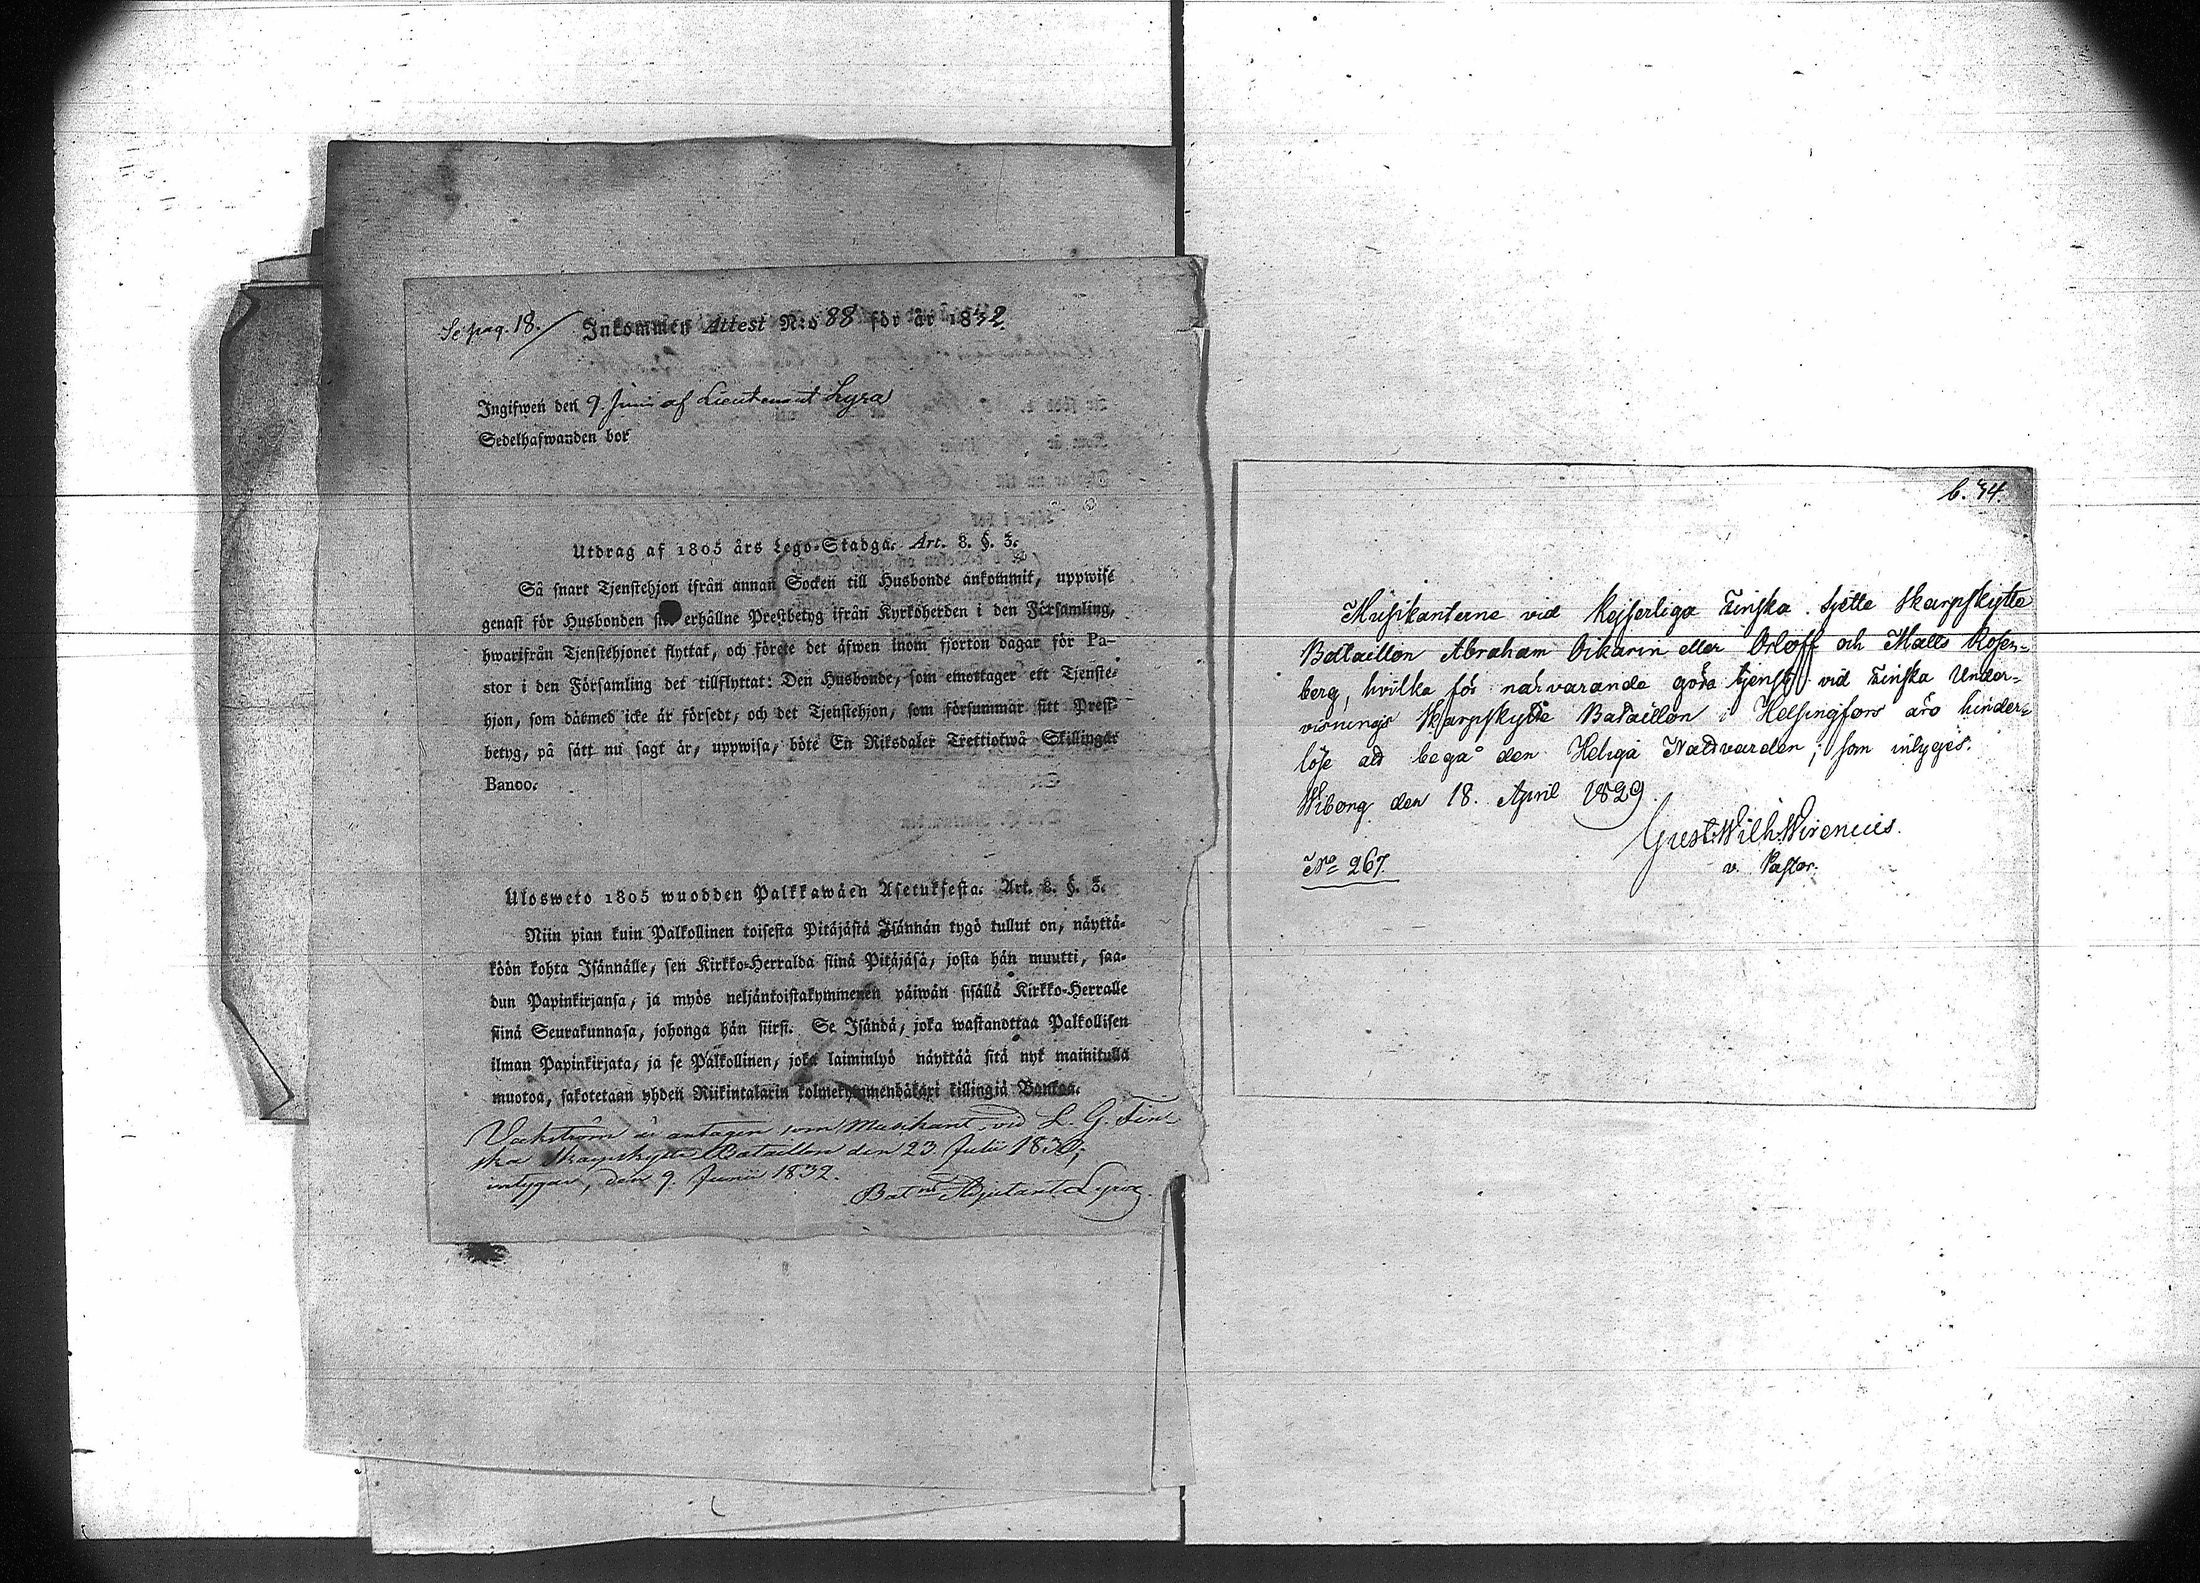 Se pag. 18.
Inkommen Attest N:o 88 för år 1832
Ingifwen den 9 Junii af Lieutenant Lyra
Sedelhafwanden bor
Utdrag af 1805 års Lego-Stadga. Art. 8. §. 3.
Så snart Tjenstehjon ifrån annan Socken till Husbonde ankommit, uppwise
genast för Husbonden sitt erhållne Prestbetyg ifrån Kyrkoherden i den Församling,
hwarifrån Tjenstehjonet flyttat, och förete det äfwen inom fjorton dagar för Pa-
stor i den Församling det tillflyttat: Den Husbonde, som emottager ett Tjenste-
hjon, som dåtmed icke är försedt, och det Tjenstehjon, som försummar sitt Prest-
betyg, på sätt nu sagt är, uppwisa, böte En Riksdaler Trettiotwå Skillingar
Banco.
Ulosweto 1805 wuodden Palkkawäen Asetuksesta. Art. 8. §. 3.
Niin pian kuin Palkollinen toisesta Pitäjästä Isännän tygö tullut on, näyttä-
köön kohta Isännälle, sen Kirkko-Herralda siinä Pitäjäsä, josta hän muutti, saa-
dun Papinkirjansa, ja myös neljäntoistakymmenen päiwän sisällä Kirkko-Herralle
siinä Seurakunnasa, johonga hän siirsi. Se Isändä, joka wastanottaa Palkollisen
ilman Papinkirjata, ja se Palkollinen, joka laiminlyö näyttää sitä nyt mainitulla
muotoa, sakotetaan yhden Riikintalarin kolmekymmendäkaxi killingiä Bankoa.
är antagen som Musikant vid L. G. Fin-
ska Skarpskytte Bataillon den 23 Julii 1830,
intygar, den 9. Junii 1832.
Bat:ns Adjutant Lyra.
b. 44.
Musikanterne vid Kejserliga Finska Sjette Skarpskytte
Bataillon Abraham Oikarin eller Orloff och Matts Rosen-
berg, hvilka för närvarande göra tjenst vid Finska Under-
visnings Skarpskytte Bataillon i Helsingfors äro hinder-
löse att begå den Heliga Nattvarden; som intygas.
Wiborg den 18. April 1829.
Gust. Wilh. Wirenius.
v. Pastor.
No 267.